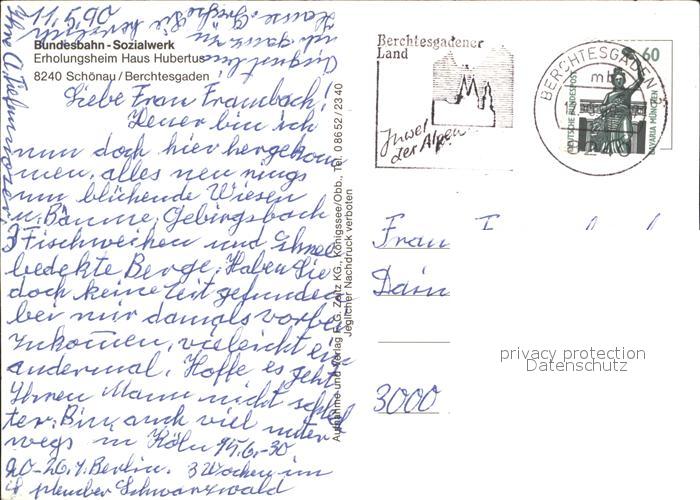 Bundesbahn-Sozialwerk
Erholungsheim Haus Hubertus
8240 Schönau/Berchtesgaden
Liebe Frau Frambach!
Heuer bin ich
nun doch hier hergekom
men, alles neu rings
um blühende Wiesen
u. Bäume, Gebirgsbach
3 Fischweihen und Schnee
bedekte Berge. Haben Sie
doch keine Zeit gefunden
bei mir damals vorbei
zukommen, vieleicht ein
andermal. Hoffe es geht
Ihren Mann nicht schlech
ter. Bin auch viel unter
wegs in Köln 15.6.-30
20-26.7. Berlin. 3 Wochen im
Schwarzwald
Aufnahme und Verlag F. G. Zeitz KG., Königssee/Obb., Tel. 0 86 52 / 23 40
Jeglicher Nachdruck verboten
Berchtesgadener
Land
Juwel
der Alpen
BERCHTESGADEN
mb
8240
60
DEUTSCHE BUNDESPOST
BAVARIA MÜNCHEN
Frau
3000
privacy protection
Datenschutz